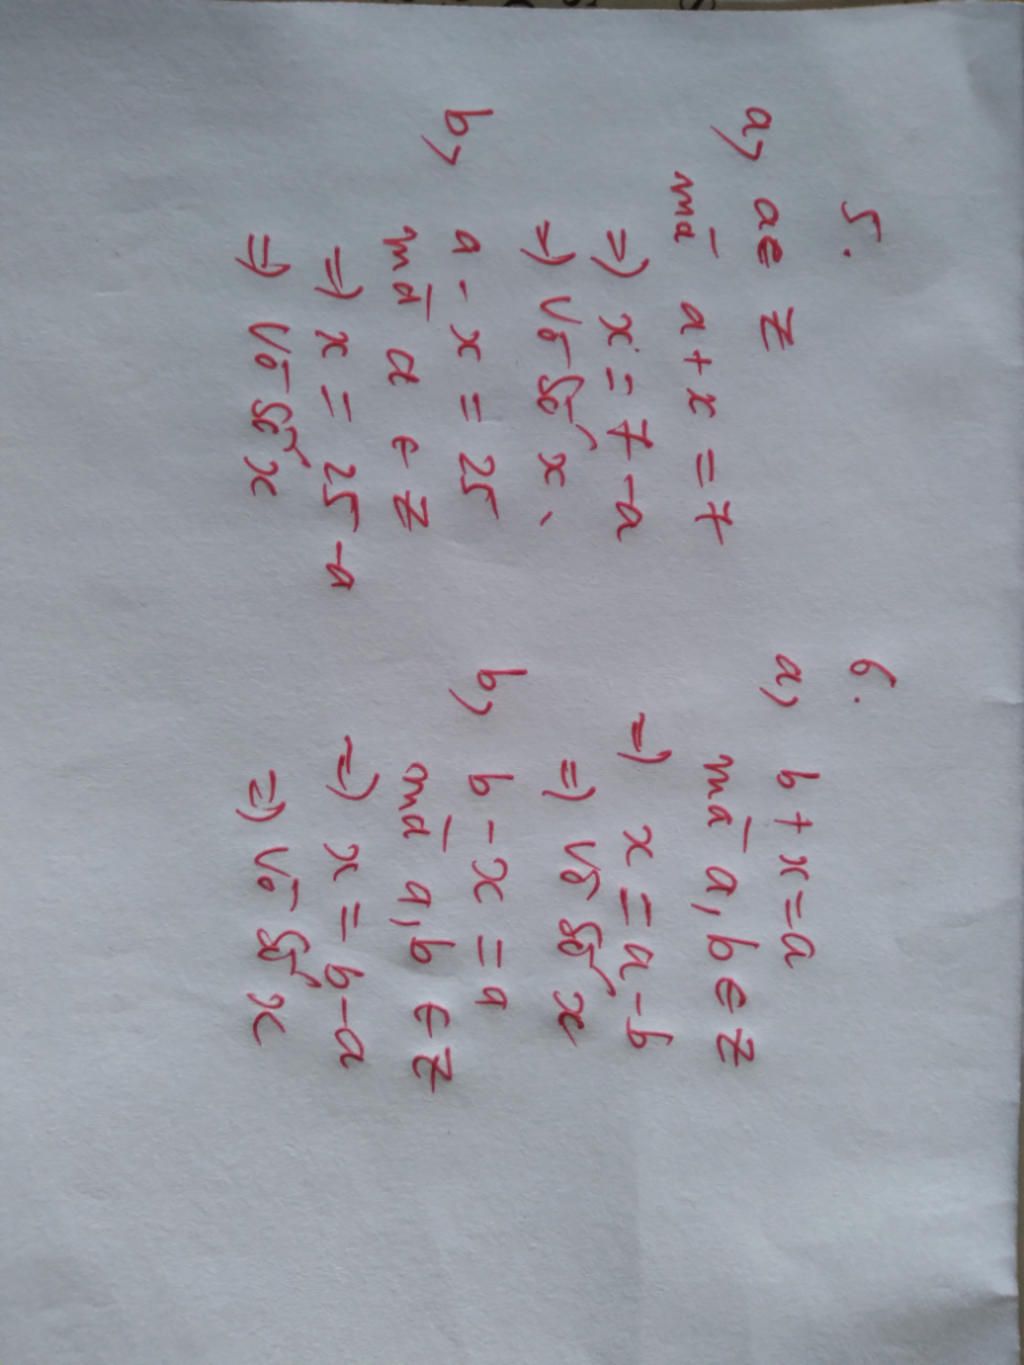 5.
a, a∈ Z
mà a + x = 7
=) x = 7 - a
=) Vô số x.
b, a - x = 25
mà a ∈ Z
=) x = 25 - a
=) Vô số x
6.
a, b + x = a
mà a, b ∈ Z
=) x = a - b
=) Vô số x
b, b - x = a
mà a, b ∈ Z
=) x = b - a
=) Vô số x